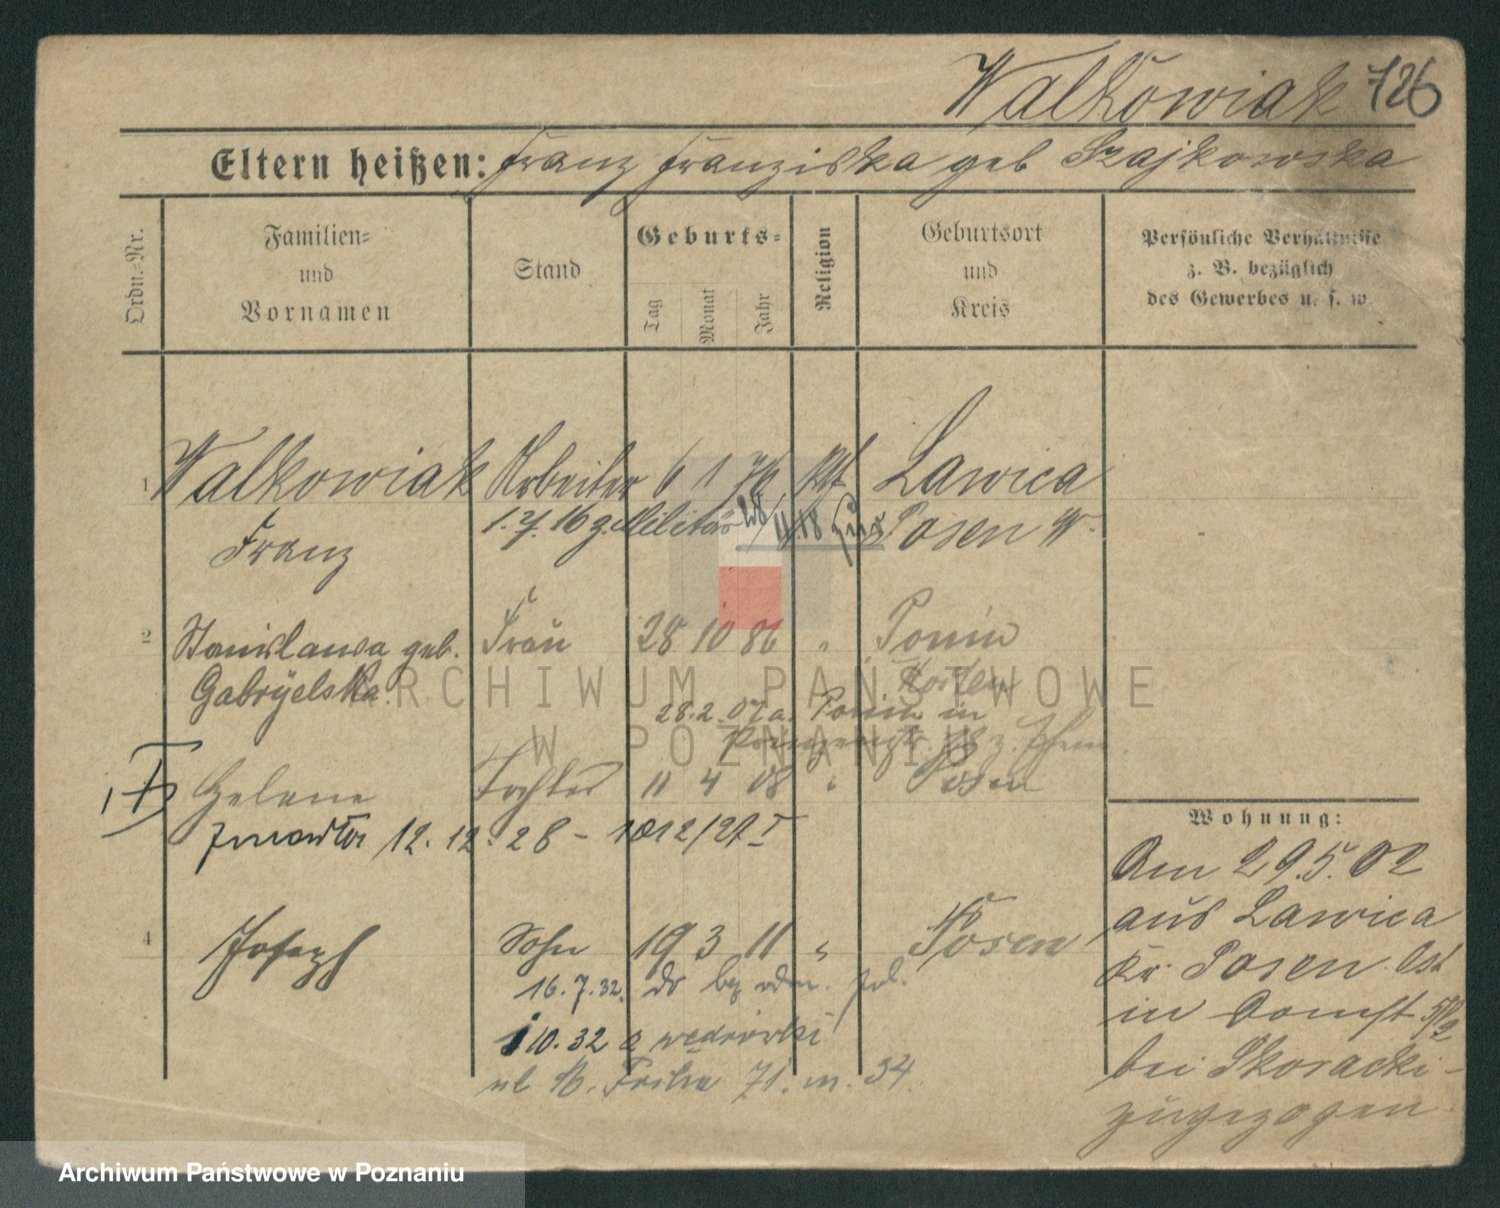 Walkowiak 726
Eltern heißen: Franz Franziska geb Szajkowska
Ordn.-Nr.
Familien- und Vornamen
Stand
Geburts-
Tag
Monat
Jahr
Religion
Geburtsort und Kreis
Persönliche Verhältnisse
z. B. bezüglich
des Gewerbes u. s. w.
1 Walkowiak Arbeiter 6 1 76 Kth Lawica
Franz 1.7.16 z. Militär 28/11.18 zur Posen W.
2 Stanislawa geb. Frau 28 10 86 " Ponin
Gabryelska Kosten
28.2.07 a. Ponin in
Helene Tochter 11 4 08 " Posen
zmarła 12.12.28 - 1012/27 I
4 Joseph Sohn 19 3 11 " Posen
16.7.32.
10.32 z wędrówki
ul 71. m. 34.
Wohnung:
Am 29.5.02
aus Lawica
Kr. Posen Ost
in
bei Skoracki-
zugezogen
ARCHIWUM PAŃSTWOWE
W POZNANIU
Archiwum Państwowe w Poznaniu